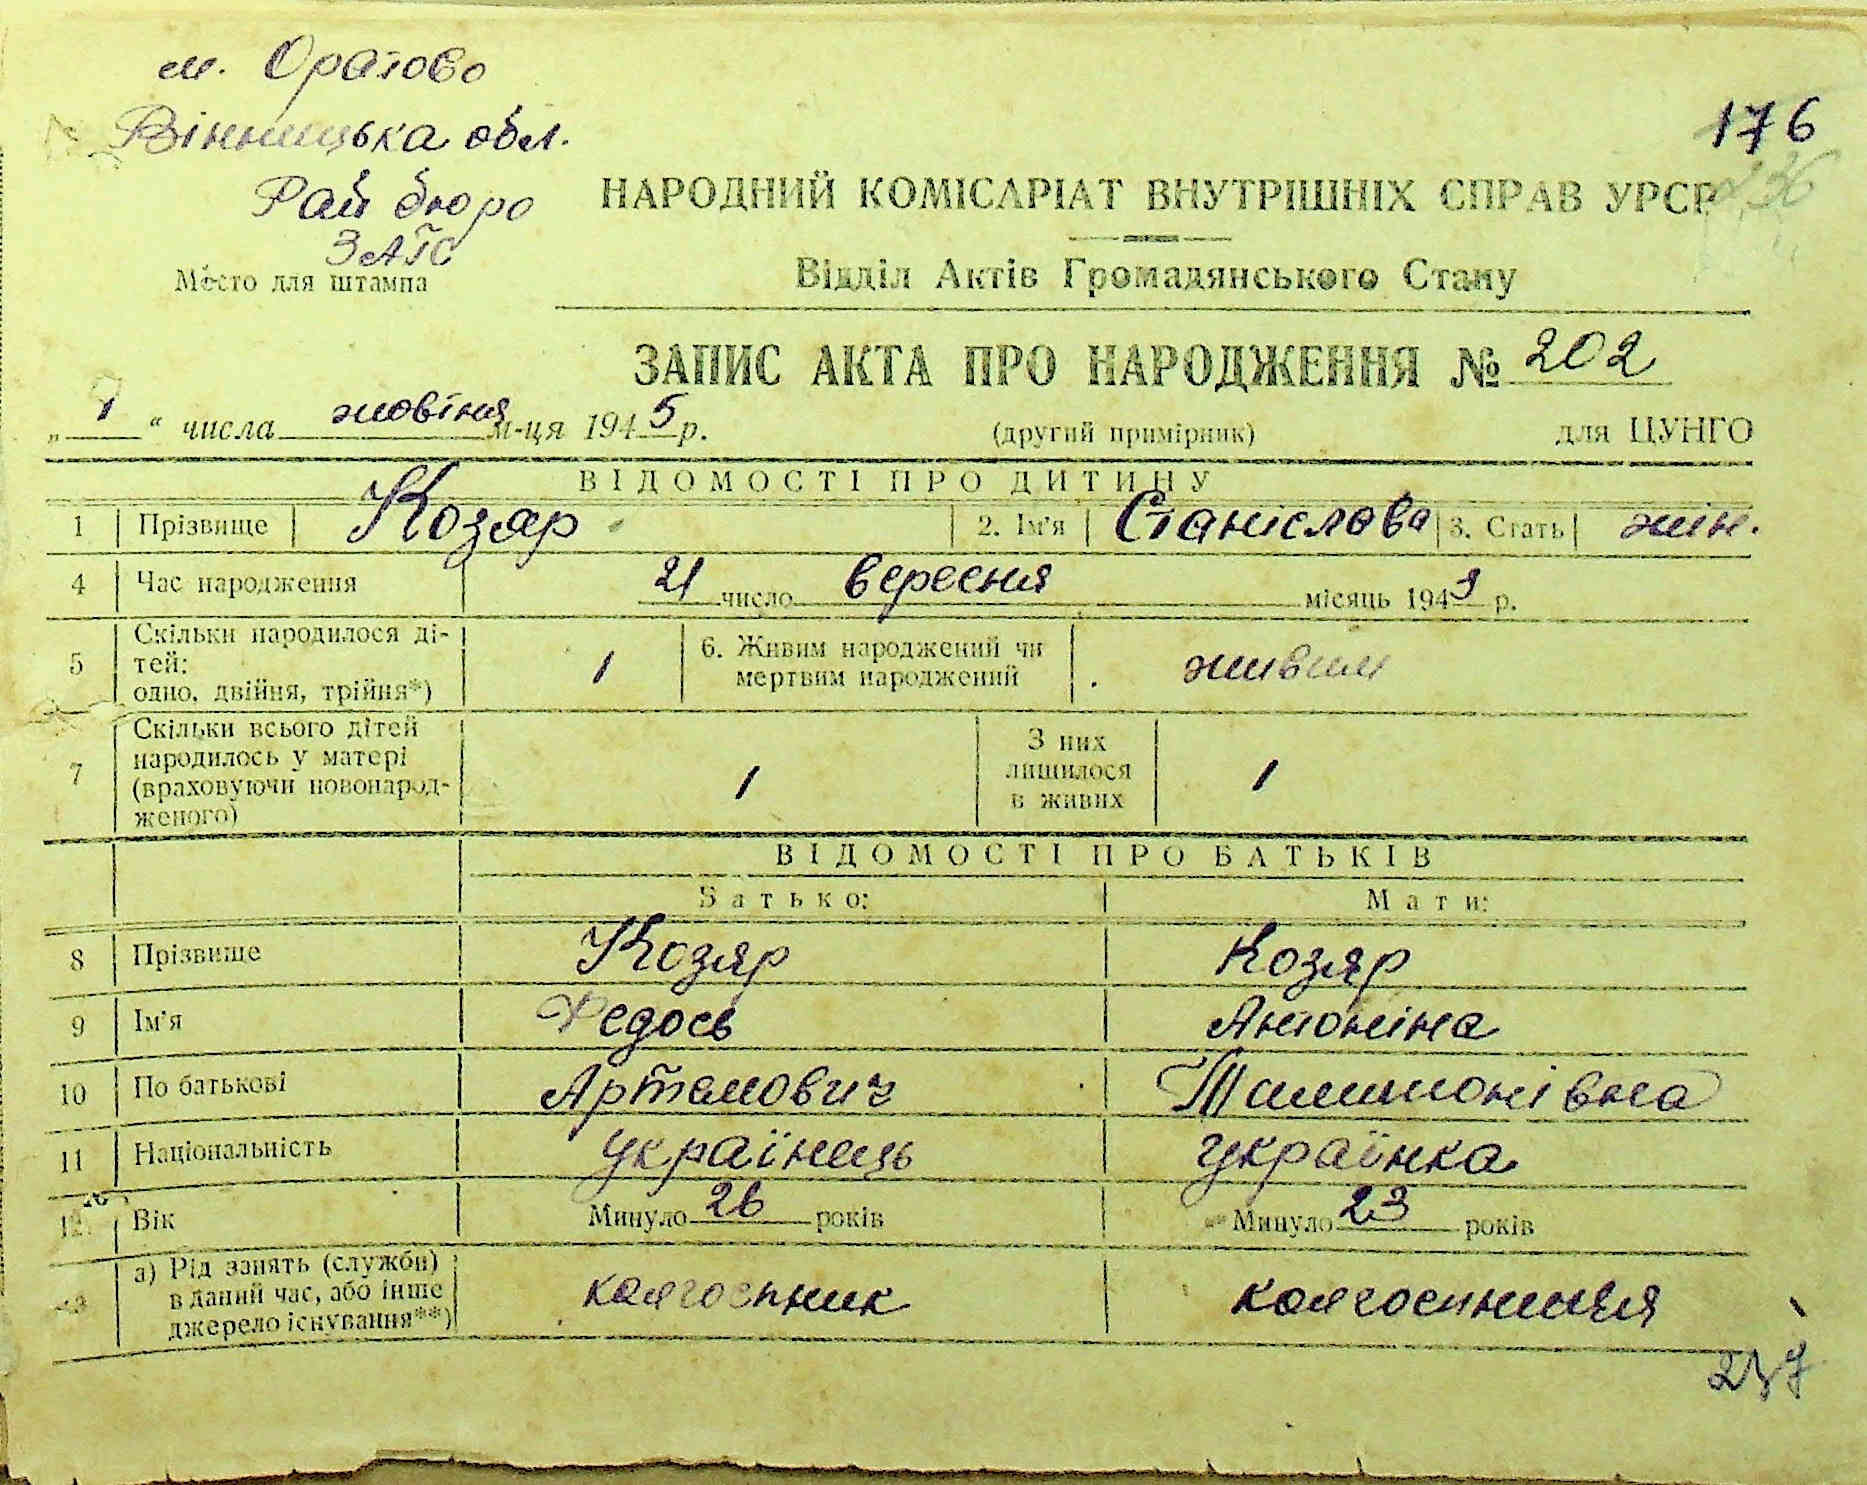 м. Оратово
Вінницька обл.
Рай бюро
ЗАГС
Место для штампа
176
236
НАРОДНИЙ КОМІСАРІАТ ВНУТРІШНІХ СПРАВ УРСР
Відділ Актів Громадянського Стану
ЗАПИС АКТА ПРО НАРОДЖЕННЯ № 202
„ 1 “ числа жовтня м-ця 1945 р. (другий примірник) для ЦУНГО
ВІДОМОСТІ ПРО ДИТИНУ
1 Прізвище Козяр 2. Ім'я Станіслова 3. Стать жін.
4 Час народження 21 число вересня місяць 1943 р.
5 Скільки народилося ді-
тей:
одно, двійня, трійня*) 1
6. Живим народжений чи
мертвим народжений живим
7 Скільки всього дітей
народилось у матері
(враховуючи новонарод-
женого) 1
З них
лишилося
в живих 1
ВІДОМОСТІ ПРО БАТЬКІВ
Батько: Мати:
8 Прізвище Козяр Козяр
9 Ім'я Федось Антоніна
10 По батькові Артемович Тимимонівна
11 Національність українець українка
12 Вік Минуло 26 років Минуло 23 років
а) Рід занять (служби)
в даний час, або інше
джерело існування**) колгоспник колгоспниця